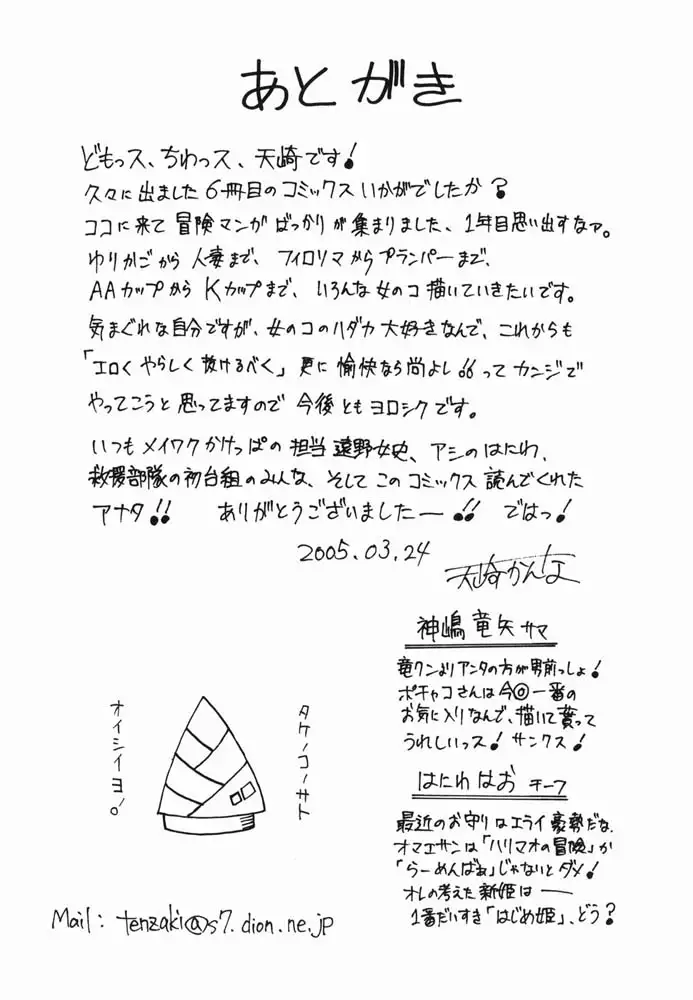 あとがき
どもっス、ちわっス、天崎です!
久々に出ました6冊目のコミックスいかがでしたか?
ココに来て冒険マンガばっかりが集まりました、1年目思い出すなァ。
ゆりかごから人妻まで、フィロリマからプランパーまで、
AAカップからKカップまで、いろんな女のコ描いていきたいです。
気まぐれな自分ですが、女のコのハダカ大好きなんで、これからも
「エロくやらしく抜けるべく」更に愉快なら尚よし!!ってカンジで
やってこうと思ってますので今後ともヨロシクです。
いつもメイワクかけっぱの担当遠野女史、アシのはにわ、
救援部隊の初台組のみんな、そしてこのコミックス読んでくれた
アナタ!! ありがとうございましたー!! ではっ!
2005.03.24
天崎かんな
神嶋竜矢サマ
竜クンよりアンタの方が男前っしょ!
ポチャコさんは今回一番の
お気に入りなんで、描いて貰って
うれしいっス!サンクス!
タケノコノサト
オイシイヨ。
はにわはお チーフ
最近のお守りはエライ豪勢だな.
オマエサンは「ハリマオの冒険」か
「らーめんばぁ」じゃないとダメ!
オレの考えた新姫は――
1番だいすき「はじめ姫」、どう?
Mail: tenzaki@s7.dion.ne.jp